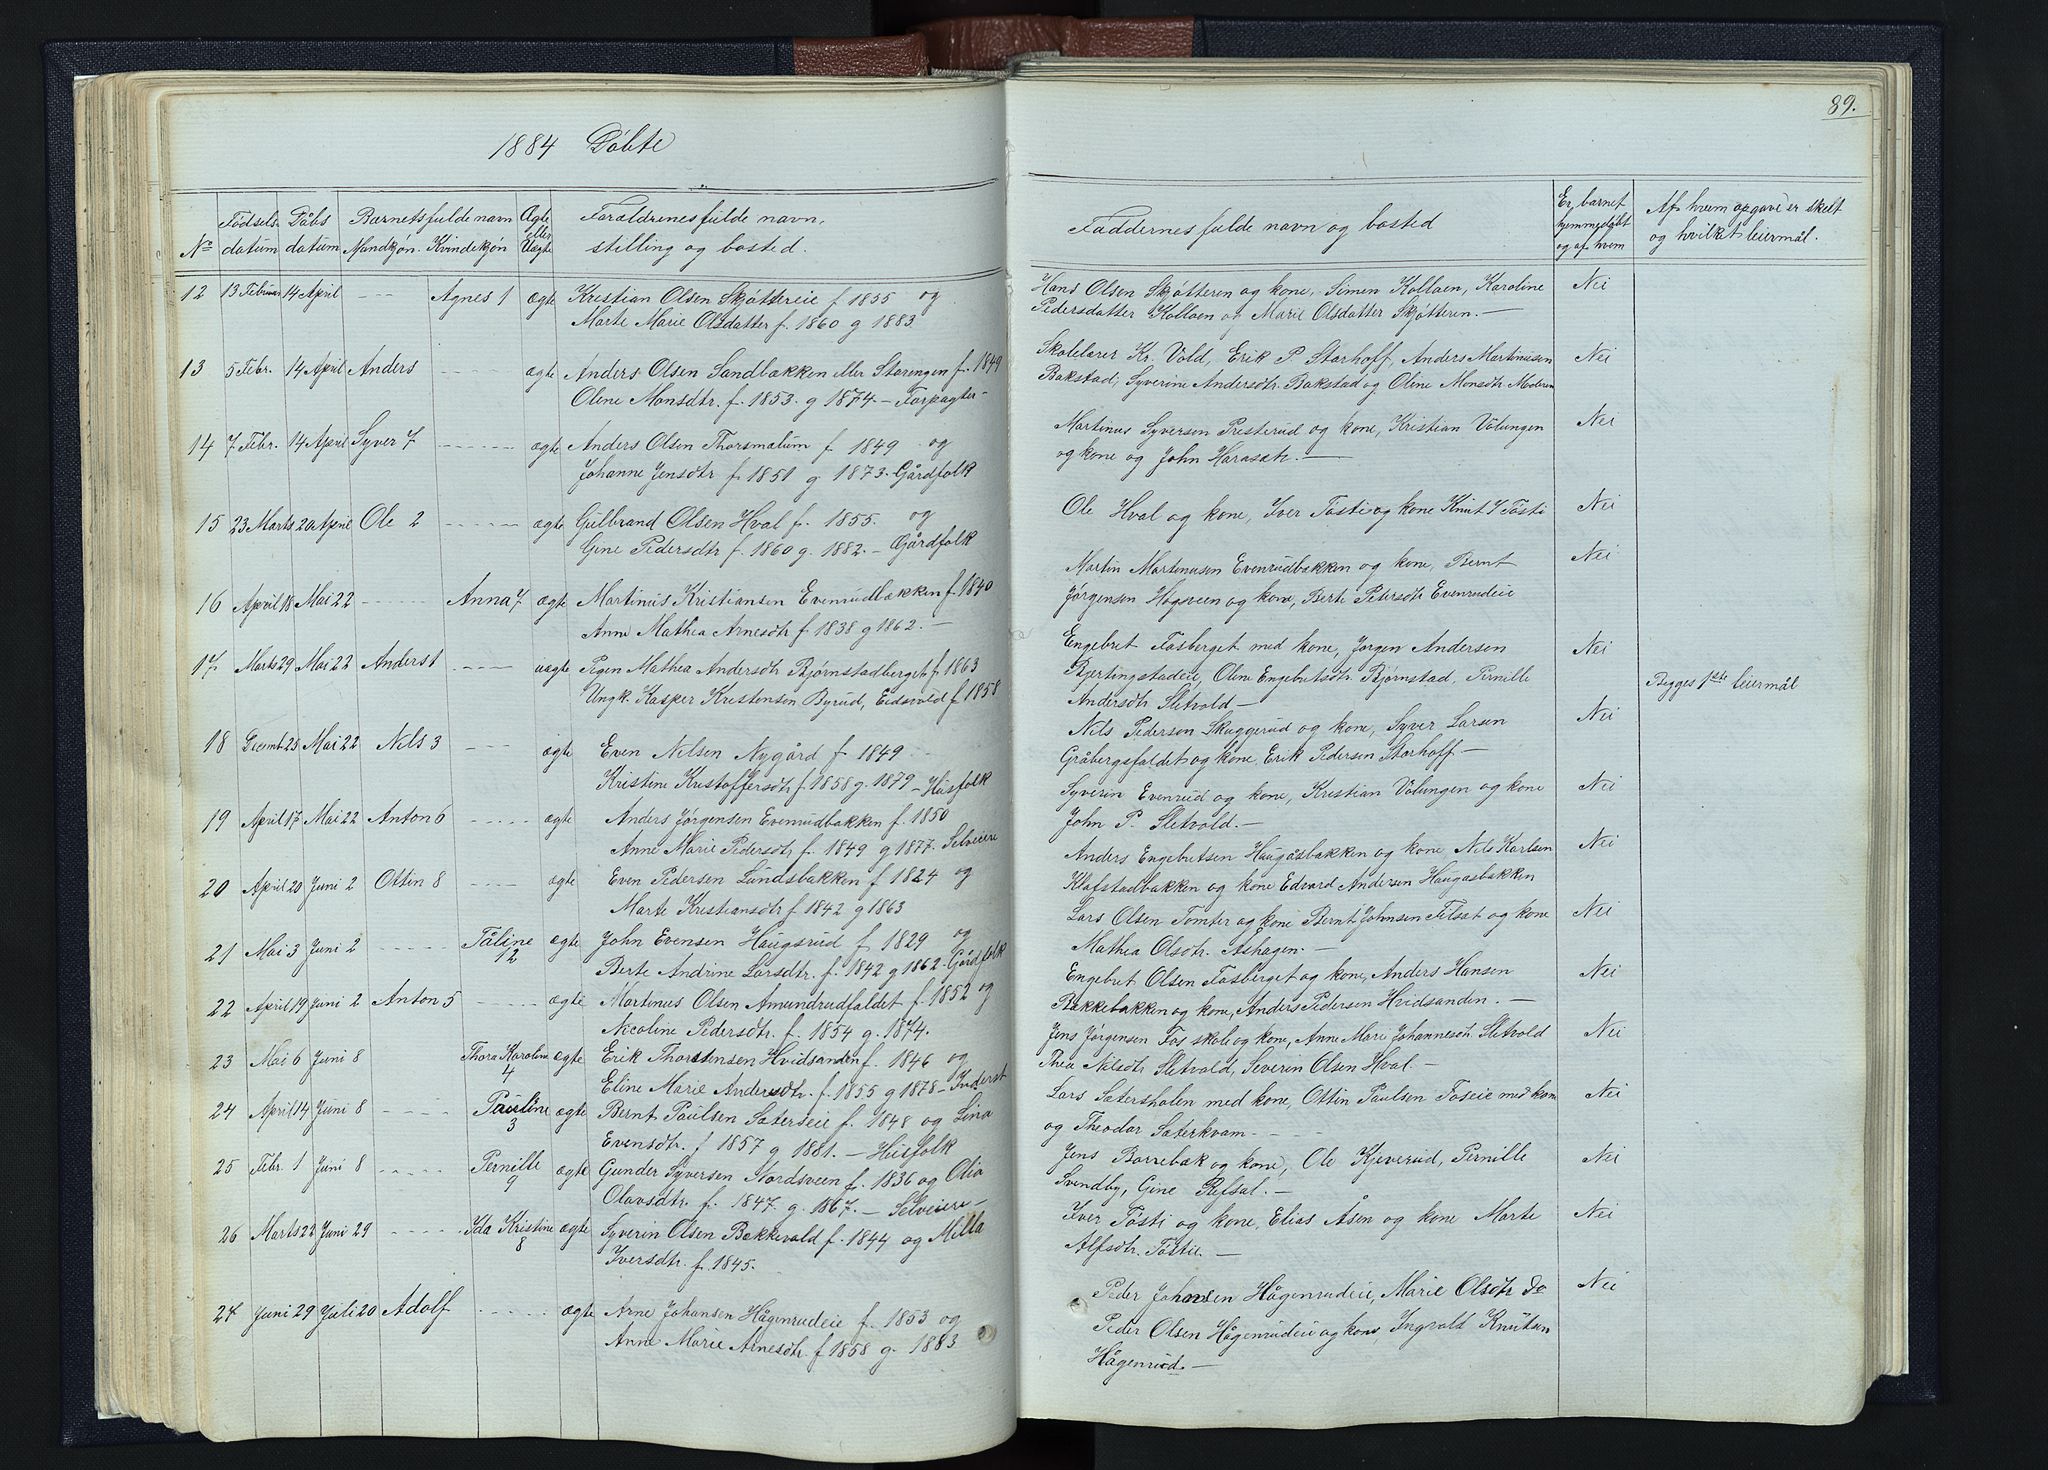 1884 Döbte
No Fødsels datum Dåbs datum Barnets fulde navn Mandkjøn. Kvindekjøn Ægte eller Uægte Forældrenes fulde navn, stilling og bosted.
12 13 Februar 14 April - - - Agnes 1 ægte Kristian Olsen Skjøttereie f 1855 og
Marte Marie Olsdatter f. 1860 g 1883.
13 5 Febr. 14 April Anders - - - - ægte Anders Olsen Sandbækken eller Storengen f. 1849
Olene Monsdtr. f. 1853. g 1874. - Forpagter -
14 7 Febr. 14 April Syver 7 - - - - ægte Anders Olsen Thorsmalum f 1849 og
Johanne Jensdtr f 1851 g 1873. Gårdfolk
15 23 Marts 20 April Ole 2 - - - - ægte Gulbrand Olsen Hval f. 1855. og
Gine Pedersdtr f. 1860 g. 1882. - Gårdfolk
16 April 18 Mai 22 - - - Anna 7 ægte Martinus Kristiansen Evenrudbækken f. 1840
Anne Mathea Arnesdtr f 1838 g 1862. -
17 Marts 29 Mai 22 Anders 1 - - - uægte Pigen Mathea Andersdtr Bjørnstadberget f. 1863
Ungk. Kasper Kristensen Byrud, Eidsvold f 1858
18 Decemb 25 Mai 22 Nils 3 - - - ægte Even Nilsen Nygård f 1849
Kristine Kristoffersdtr f. 1858 g. 1879 - Husfolk
19 April 17 Mai 22 Anton 6 - - - - ægte Anders Jørgensen Evenrudbakken f. 1850
Anne Marie Pedersdtr f. 1849 g 1877. Selveiere
20 April 20 Juni 2 Ottin 8 - - - - ægte Even Pedersen Lundsbakken f 1824 og
Marte Kristiansdtr f. 1842 g 1863
21 Mai 3 Juni 2 - - - - Påline 12 ægte John Evensen Haugsrud f 1829 og
Berte Andrine Larsdtr. f. 1842 g 1862. Gårdfolk
22 April 19 Juni 2 Anton 5 - - - - ægte Martinus Olsen Amundrudfaldet f. 1852 og
Nicoline Pedersdtr. f. 1854 g. 1874.
23 Mai 6 Juni 8 Thora Karoline 4 ægte Erik Thorstensen Hvidsanden f. 1846 og
Eline Marie Andersdtr f. 1855 g 1878 - Inderst
24 April 14 Juni 8 - - - - Pauline 3 ægte Bernt Paulsen Sætereie f. 1848 og Lina
Evensdtr. f 1857 g 1881. - Husfolk
25 Febr. 1 Juni 8 - - - - Pernille 9 ægte Gunder Syversen Nordsveen f. 1836 og Olia
Olavsdtr. f. 1847. g. 1867. - Selveiere -
26 Marts 22 Juni 29 - - - - Ida Kristine 8 ægte Syverin Olsen Bækkevold f. 1844 og Milla
Iversdtr f. 1845.
27 Juni 29 Juli 20 Adolf - - - - ægte Arne Johansen Hågenrudeie f. 1853 og
Anne Marie Arnesdtr. f 1858 g. 1883
89.
Faddernes fulde navn og bosted Er barnet hjemmedøbt og af hvem Af hvem opgave er skelt og hvilket leiermål.
Hans Olsen Skjøtteren og kone, Simen Kollaen, Karoline Nei
Pedersdatter Kollaen og Marie Olsdatter Skjøtteren. -
Skolelærer Kr. Vold, Erik P. Storhoff, Anders Martinusen Nei
Bakstad, Syverine Andersdtr. Bakstad og Oline Monsdtr Moderen
Martinus Syversen Presterud og kone, Kristian Volungen Nei
og kone og John Haraset. -
Ole Hval og kone, Iver Tosti og kone Knut I Tosti Nei
Martin Martinusen Evenrudbækken og kone, Bernt Nei
Jørgensen Høgsveen og kone, Berte Petersdtr Evenrudeie
Engebret Fosberget med kone, Jørgen Andersen Nei
Bjertingstadeie, Oline Engebretsdtr Bjørnstad, Pernille Begges 1ste leiermål
Andersdtr Sletvold -
Nils Pedersen Skuggerud og kone, Syver Larsen Nei
Gråbergsfaldet og kone, Erik Pedersen Storhoff. -
Syverin Evenrud og kone, Kristian Volungen og kone Nei
John P. Sletvold. -
Anders Engebretsen Haugåsbakken og kone Nils Karlsen Nei
Klafstadbakken og kone Edvard Andersen Haugasbakken
Lars Olsen Tomter og kone Bernt Johnsen Filset og kone Nei
Mathea Olsdtr. Ashagen. -
Engebret Olsen Fosberget og kone, Anders Hansen Nei
Bakkebakken og kone, Anders Pedersen Hvidsanden. -
Jens Jørgensen Fos skole og kone, Anne Marie Johannesdtr Sletvold Nei
Thea Nilsdtr Sletvold, Severin Olsen Hval. -
Lars Sætersholen med kone, Ottin Paulsen Foseie med kone Nei
og Theodor Sæterkvam - - -
Jens Borrebæk og kone, Ole Kjeverud, Pernille Nei
Svendby, Gine Refsal. -
Iver Tosti og kone, Elias Åsen og kone Marte Nei
Alfsdtr. Tostie. -
Peder Johansen Hågenrudeie, Marie Olsdtr do Nei
Peder Olsen Hågenrudeie og kone, Ingvald Knutsen
Hågenrud. -